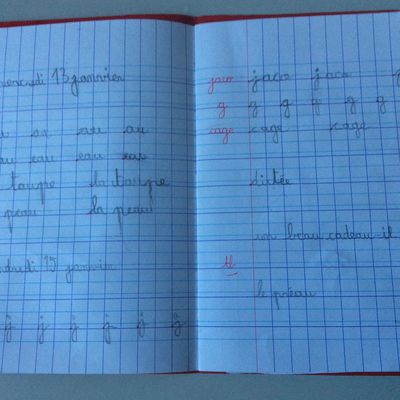 mercredi 13 janvier
au au
au eau eau eau
taupe la taupe
peau la peau
vendredi 15 janvier
j j j j j j
jaco jaco jaco
g g g g g g
cage cage cage
dictée
un beau cadeau il
le préau